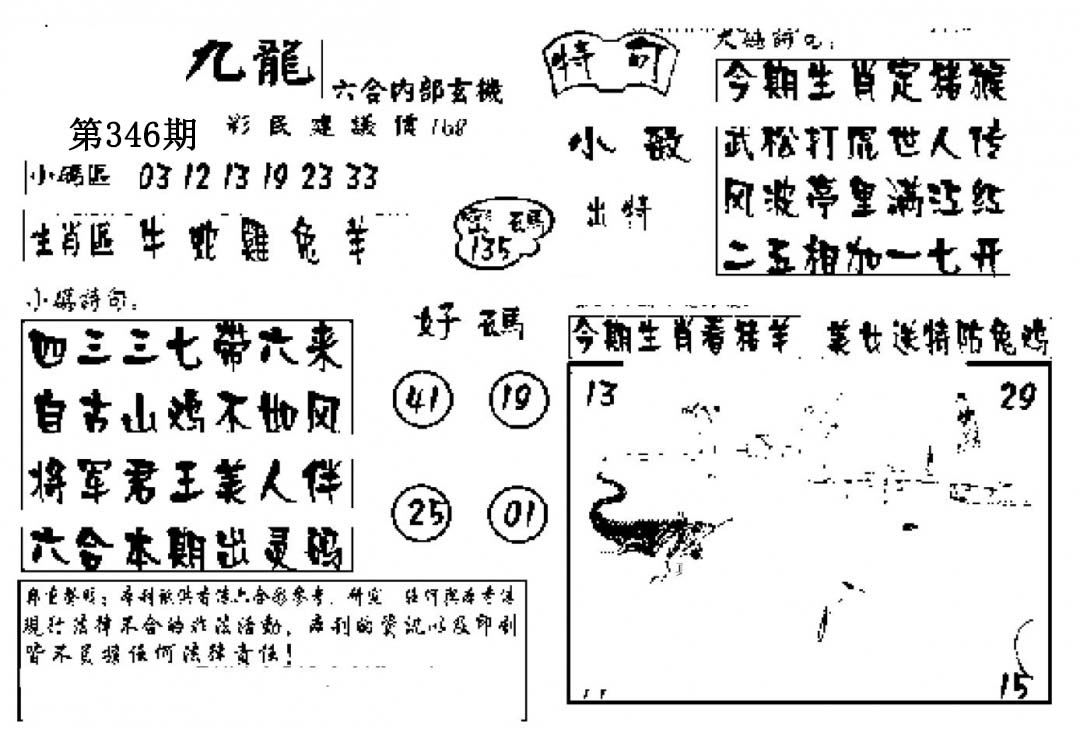 九龍
六合内部玄機
第346期
彩民建議價168
小碼區 03 12 13 19 23 33
生肖區 牛 蛇 雞 兔 羊
密碼
135
特句
小數
出特
今期生肖定猪猴
武松打虎世人传
风波亭里满江红
二五相加一七开
小碼詩句:
四三三七帶六来
自古山鸡不如凤
将军君王美人伴
六合本期出灵码
好碼
41 19
25 01
今期生肖看猪羊 美女送特防兔鸡
13
29
15
鄭重聲明:本刊祇供香港六合彩參考、研究
現行法律不合的非法活動,本刊的資訊以及印刷
皆不負擔任何法律責任!